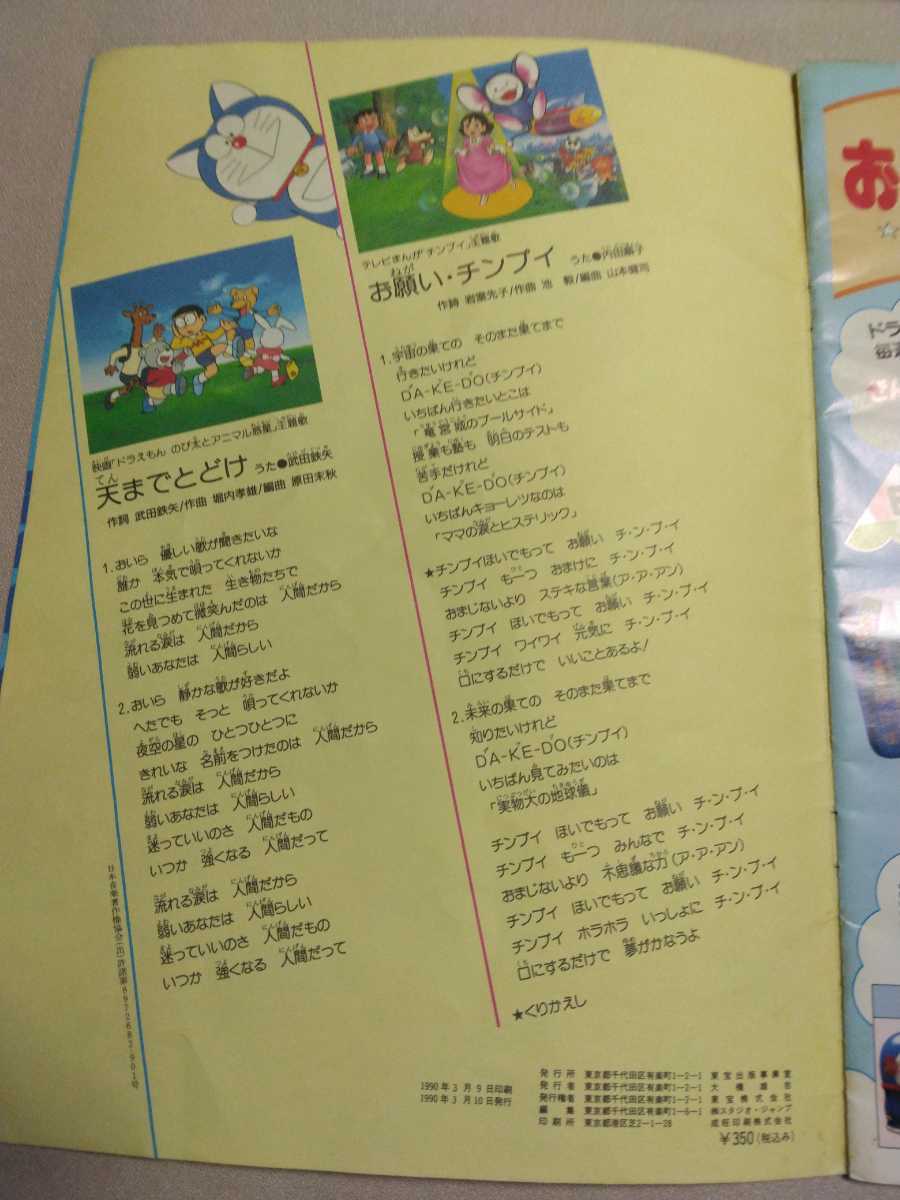 映画「ドラえもん のび太とアニマル惑星」主題歌
天までとどけ うた●武田鉄矢
作詞 武田鉄矢/作曲 堀内孝雄/編曲 原田末秋
1.おいら 優しい歌が聞きたいな
誰か 本気で唄ってくれないか
この世に生まれた 生き物たちで
花を見つめて微笑んだのは 人間だから
流れる涙は 人間だから
弱いあなたは 人間らしい
2.おいら 静かな歌が好きだよ
へたでも そっと 唄ってくれないか
夜空の星の ひとつひとつに
きれいな 名前をつけたのは 人間だから
流れる涙は 人間だから
弱いあなたは 人間らしい
迷っていいのさ 人間だもの
いつか 強くなる 人間だって
流れる涙は 人間だから
弱いあなたは 人間らしい
迷っていいのさ 人間だもの
いつか 強くなる 人間だって
日本音楽著作権協会(出)許諾第8972682-901号
テレビまんが「チンプイ」主題歌
お願い・チンプイ うた●内田順子
作詩 岩室先子/作曲 池 毅/編曲 山本健司
1.宇宙の果ての そのまた果てまで
行きたいけれど
DA-KE-DO(チンプイ)
いちばん行きたいとこは
「竜宮城のプールサイド」
授業も塾も 明日のテストも
苦手だけれど
DA-KE-DO(チンプイ)
いちばんキョーレツなのは
「ママの涙とヒステリック」
★チンプイほいでもって お願い チ・ン・プ・イ
チンプイ も一つ おまけに チ・ン・プ・イ
おまじないより ステキな言葉(ア・ア・アン)
チンプイ ほいでもって お願い チ・ン・プ・イ
チンプイ ワイワイ 元気に チ・ン・プ・イ
口にするだけで いいことあるよ!
2.未来の果ての そのまた果てまで
知りたいけれど
DA-KE-DO(チンプイ)
いちばん見てみたいのは
「実物大の地球儀」
チンプイ ほいでもって お願い チ・ン・プ・イ
チンプイ も一つ みんなで チ・ン・プ・イ
おまじないより 不思議な力(ア・ア・アン)
チンプイ ほいでもって お願い チ・ン・プ・イ
チンプイ ホラホラ いっしょに チ・ン・プ・イ
口にするだけで 夢がかなうよ
★くりかえし
1990年3月9日印刷
1990年3月10日発行
発行所 東京都千代田区有楽町1-2-1 東宝出版事業室
発行者 東京都千代田区有楽町1-2-1 大橋雄吉
発行権者 東京都千代田区有楽町1-2-1 東宝株式会社
編集 東京都千代田区有楽町1-6-1 ㈱スタジオ・ジャンプ
印刷所 東京都港区芝2-1-28 成旺印刷株式会社
¥350(税込み)
お
ドラ
毎